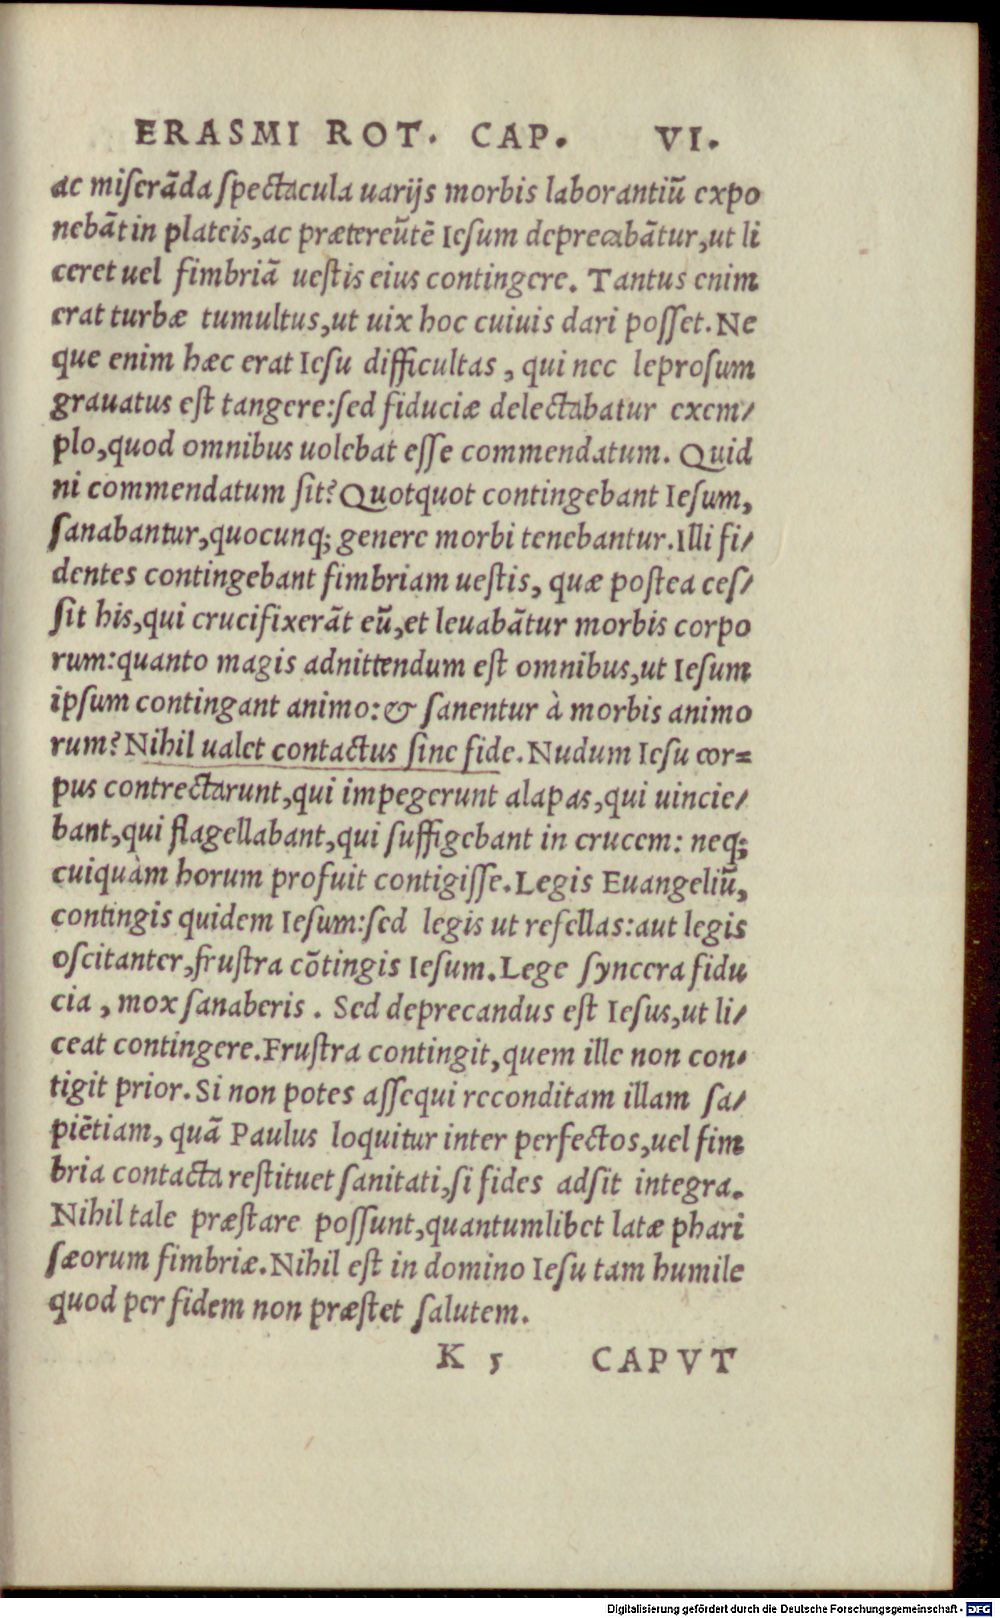 ERASMI ROT. CAP. VI.
ac miserãda spectacula uarijs morbis laborantiũ expo
nebãt in plateis, ac prætereũtẽ Iesum deprecabãtur, ut li
ceret uel fimbriã uestis eius contingere. Tantus enim
erat turbæ tumultus, ut uix hoc cuiuis dari posset. Ne
que enim hæc erat Iesu difficultas, qui nec leprosum
grauatus est tangere: sed fiduciæ delectabatur exem/
plo, quod omnibus uolebat esse commendatum. Quid
ni commendatum sit? Quotquot contingebant Iesum,
sanabantur, quocunq; genere morbi tenebantur. Illi fi/
dentes contingebant fimbriam uestis, quæ postea ces/
sit his, qui crucifixerãt eũ, et leuabãtur morbis corpo
rum: quanto magis adnittendum est omnibus, ut Iesum
ipsum contingant animo: & sanentur à morbis animo
rum? Nihil ualet contactus sine fide. Nudum Iesu cor=
pus contrectarunt, qui impegerunt alapas, qui uincie/
bant, qui flagellabant, qui suffigebant in crucem: neq;
cuiquàm horum profuit contigisse. Legis Euangeliũ,
contingis quidem Iesum: sed legis ut refellas: aut legis
oscitanter, frustra cõtingis Iesum. Lege syncera fidu
cia, mox sanaberis. Sed deprecandus est Iesus, ut li/
ceat contingere. Frustra contingit, quem ille non con-
tigit prior. Si non potes assequi reconditam illam sa/
piẽtiam, quã Paulus loquitur inter perfectos, uel fim
bria contacta restituet sanitati, si fides adsit integra.
Nihil tale præstare possunt, quantumlibet latæ phari
sæorum fimbriæ. Nihil est in domino Iesu tam humile
quod per fidem non præstet salutem.
K 5 CAPVT
Digitalisierung gefördert durch die Deutsche Forschungsgemeinschaft - DFG